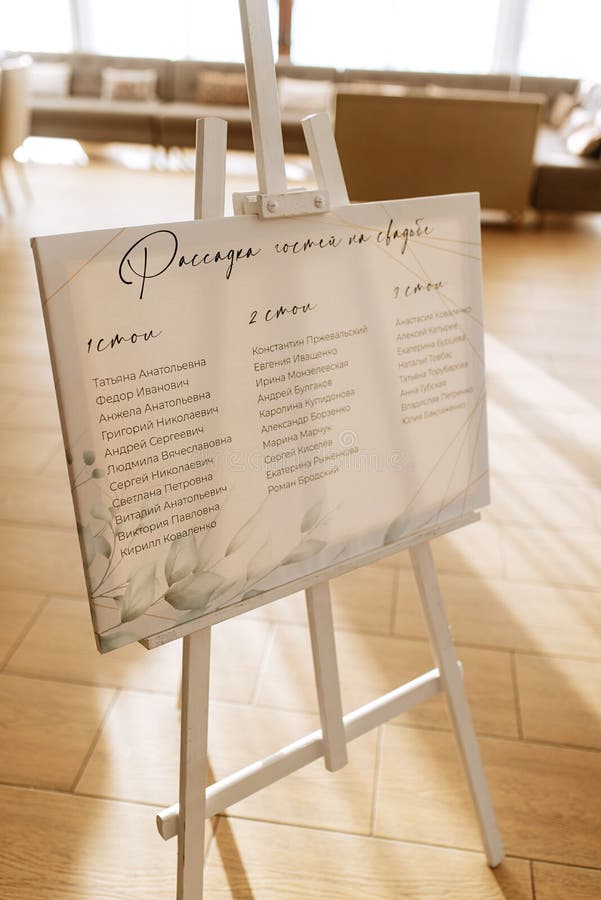 Рассадка гостей на свадьбе
1 стол
Татьяна Анатольевна
Федор Иванович
Анжела Анатольевна
Григорий Николаевич
Андрей Сергеевич
Людмила Вячеславовна
Сергей Николаевич
Светлана Петровна
Виталий Анатольевич
Виктория Павловна
Кирилл Коваленко
2 стол
Константин Пржевальский
Евгения Иващенко
Ирина Монзелевская
Андрей Булгаков
Каролина Купидонова
Александр Борзенко
Марина Марчук
Сергей Киселёв
Екатерина Рыженкова
Роман Бродский
3 стол
Анастасия Коваленко
Алексей Катырев
Екатерина Бурцева
Наталья Товбас
Татьяна Торубарова
Анна Губская
Владислав Петренко
Юлия